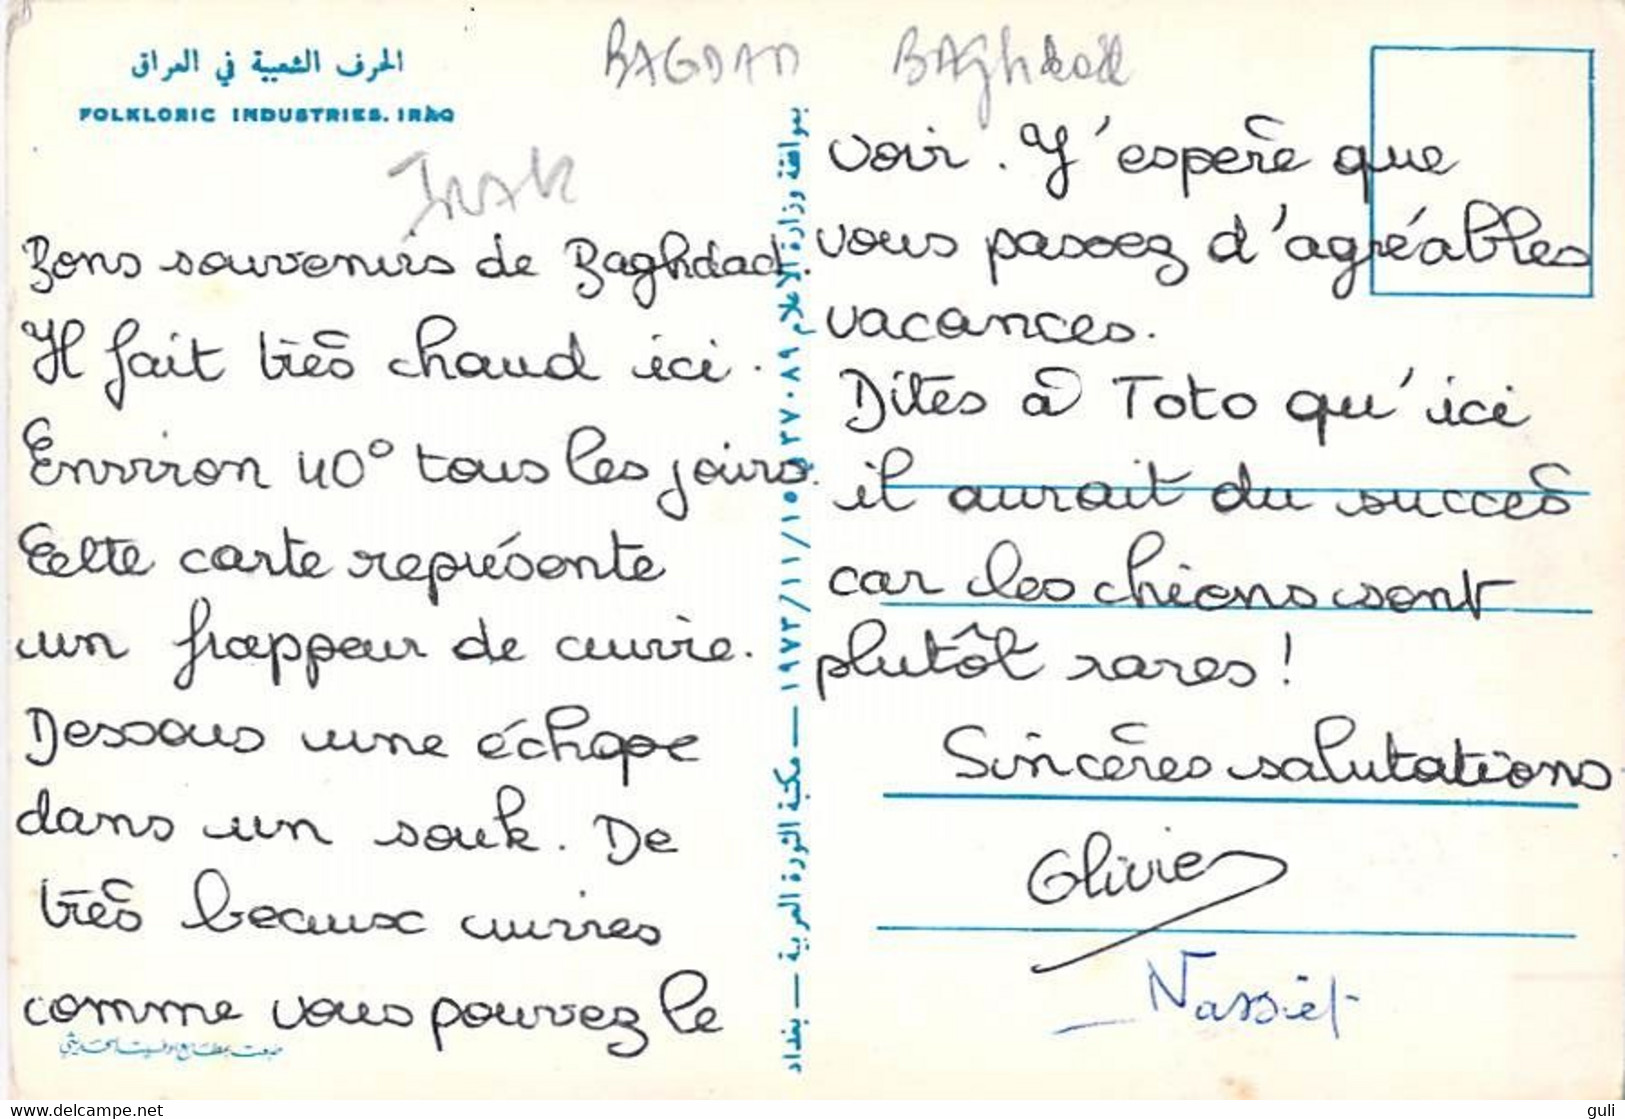 الحرف الشعبية في العراق
FOLKLORIC INDUSTRIES. IRAQ
BAGDAD
BAGhdad
IRAK
Bons souvenirs de Baghdad.
Il fait très chaud ici.
Environ 40° tous les jours.
Cette carte représente
un frappeur de cuivre.
Dessous une échope
dans un souk. De
très beaux cuivres
comme vous pouvez le
بموافقة وزارة الاعلام ٢٧٠٨٩ في ١٩٧٣/١١/١٥ — مكتبة الثورة العربية — بغداد
voir. J'espère que
vous passez d'agréables
vacances.
Dites à Toto qu'ici
il aurait du succès
car les chiens sont
plutôt rares !
Sincères salutations
Olivier
www.delcampe.net
guli